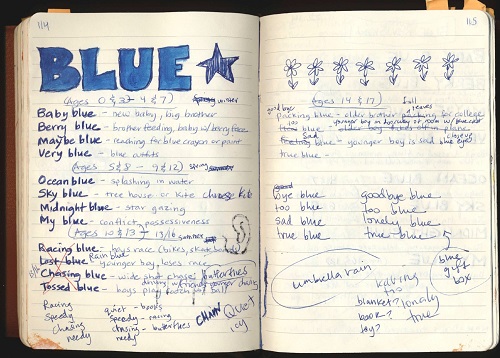 114
BLUE
(Ages 0 & 3 4 & 7) Spring winter
Baby blue - new baby, big brother
Berry blue - brother feeding baby w/ berry face
Maybe blue - reaching for blue crayon or paint
Very blue - blue outfits
(Ages 5 & 8 - 9 & 12) spring summer
Ocean blue - splashing in water
Sky blue - tree house or kite chase kite
Midnight blue - star gazing
My blue - conflict, possessiveness
(Ages 10 & 13 - 13/16 summer
Racing blue - boys race (bikes, skateboards
Lost blue Rain blue - younger boy, loses race
Chasing blue - wide shot chase butterflies
Tossed blue - boys play
Racing quiet - books
Speedy speedy - racing
Chasing chasing - butterflies
needy needy
CHAIN
QUIET
icy
115
(Ages 14 & 17) Fall
goodbye leaves
Packing blue - older brother packing for college
too younger boy in doorway of room w/ blue coat
blue - older boy takes off in plane
Sad close up
blue - younger boy is sad blue eyes
true blue -
bye blue goodbye blue
too blue too blue
sad blue lonely blue
true blue true blue
umbrella rain
blanket?
book?
toy?
too
lonely
true
blue
gift
box